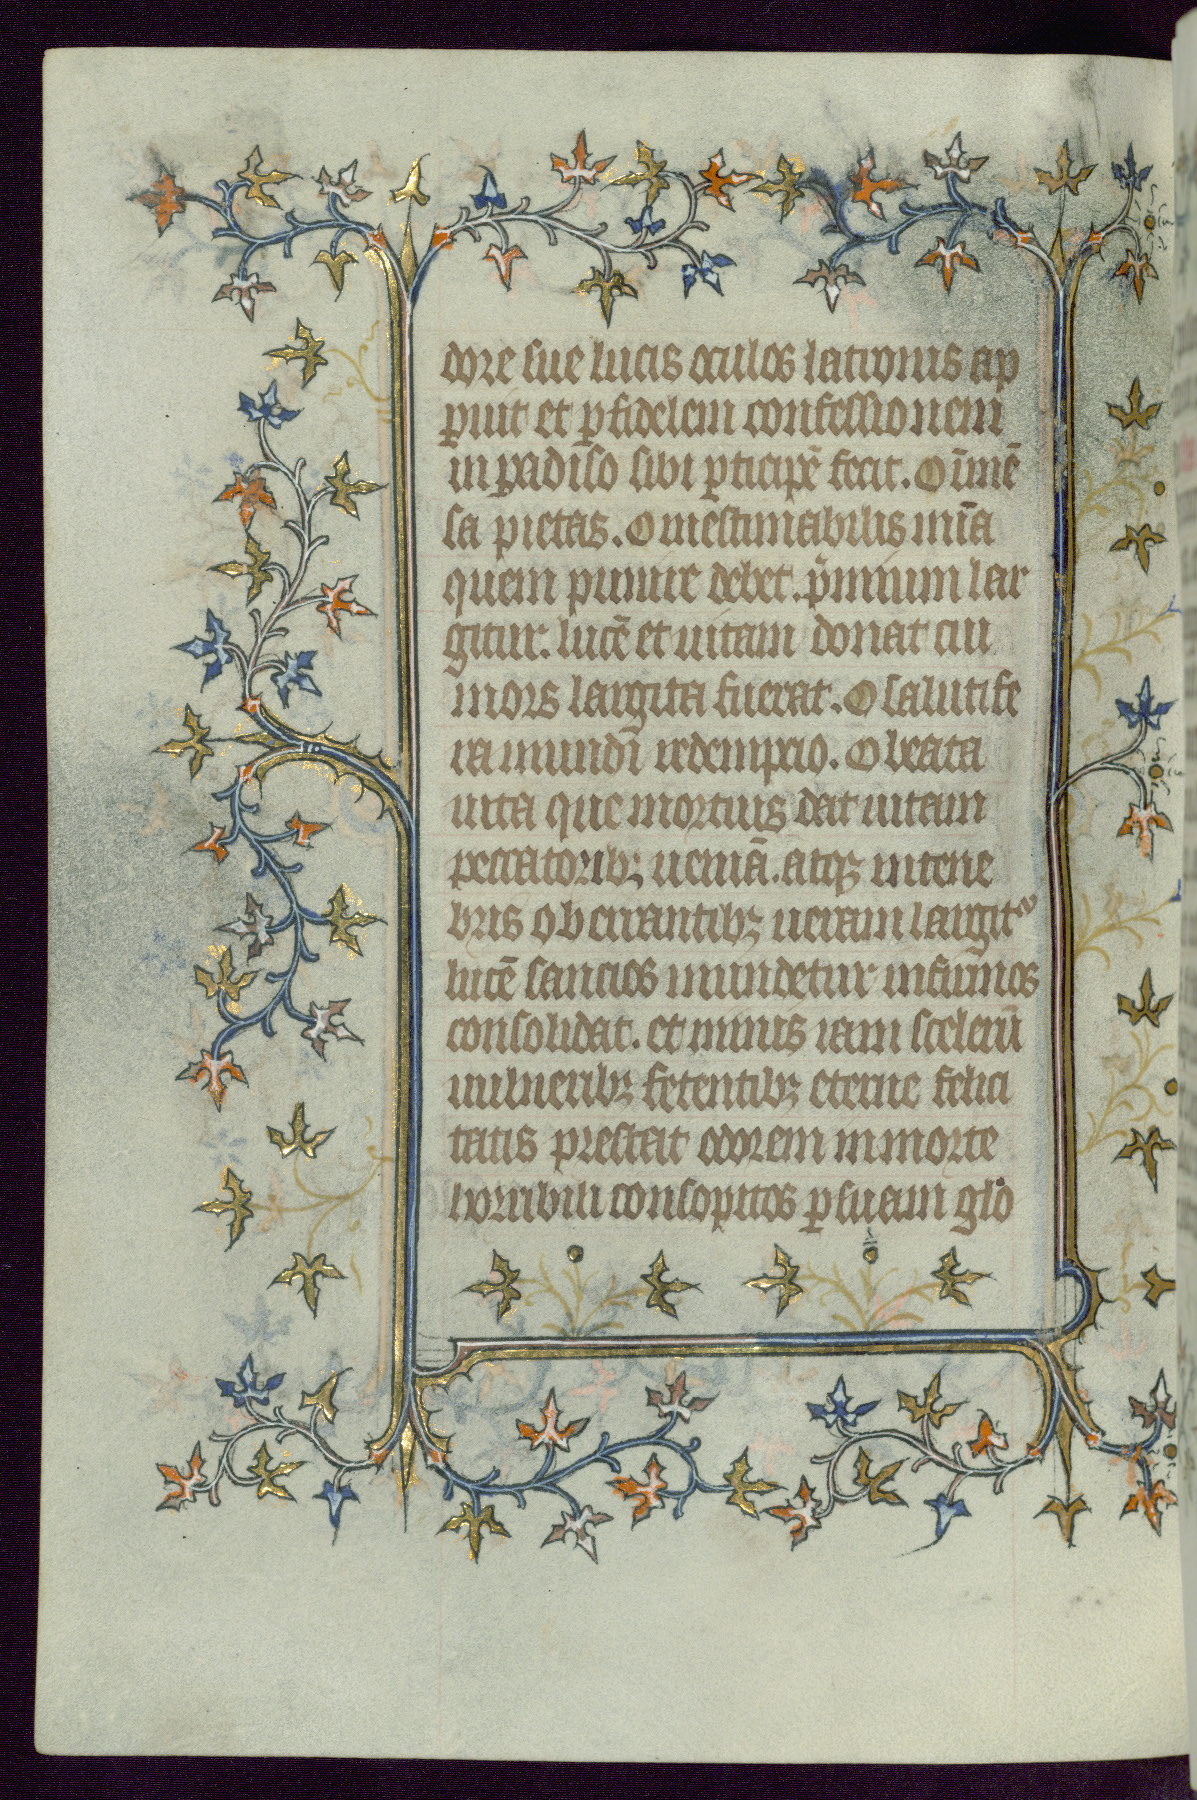 dore sue lucis oculos lationis ap
ꝑuit et ꝑ fidelem confessionem
in padiso sibi ꝑticipē fecit. O īmē
sa pietas. O inestimabilis mīa
quem punire debet. p̄mium lar
gitur. lucē et uitam donat cui
mors largita fuerat. O salutife
ra mundi redempcio. O beata
uita que mortuis dat uitam
peccatoribꝫ ueniā. atqꝫ in tene
bris oberrantibꝫ ueram largit᷑
lucē sanctos mundetur infirmos
consolidat. et nimis iam scelerū
uulneribꝫ fetentibꝫ eterne felici
tatis prestat odorem in morte
horribili consopitos ꝑ suam glo